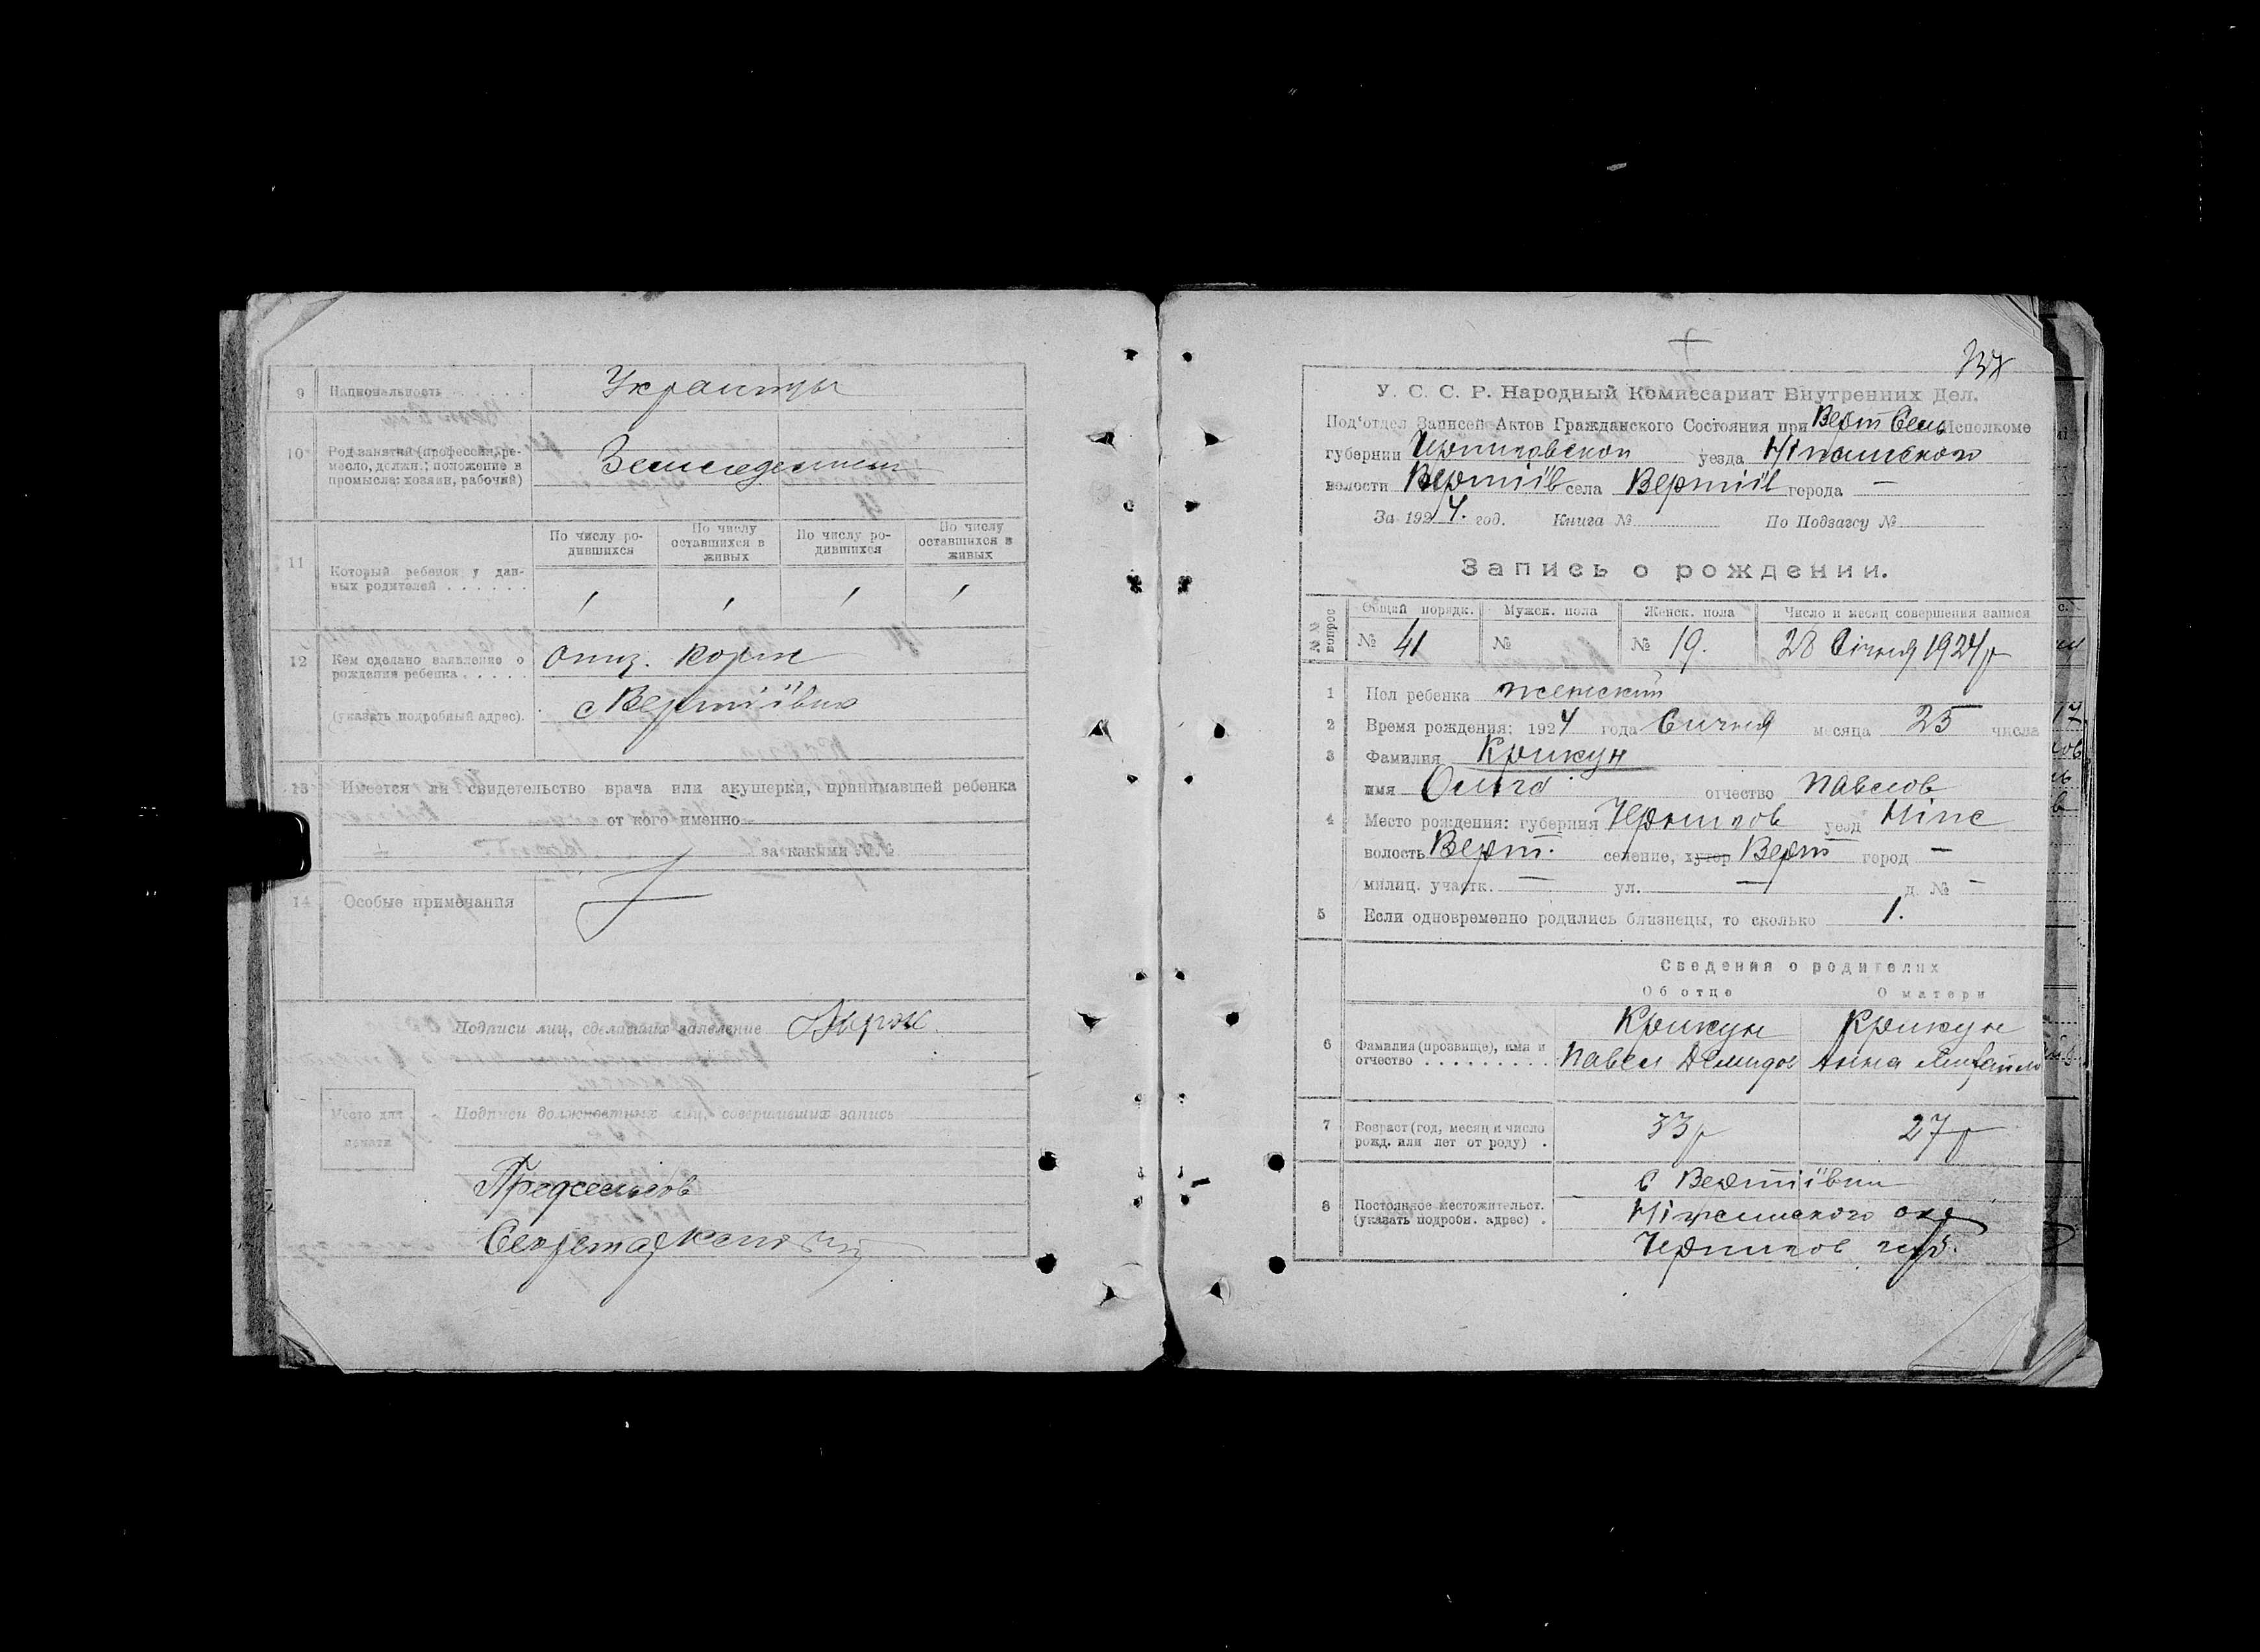 9 Национальность Украинцы
10 Род занятий (профессия, ре-
месло, должн.; положение в
промысле: хозяин, рабочий)
11 Который ребенок у дан-
ных родителей
По числу ро-
дившихся
По числу
оставшихся в
живых
По числу ро-
дившихся
По числу
оставшихся в
живых
1 1 1 1
12 Кем сделано заявление о
рождении ребенка
(указать подробный адрес).
с Вертіївка
13 Имеется ли свидетельство врача или акушерки, принимавшей ребенка
от кого именно
за какими №№
14 Особые примечания
Подписи лиц, сделавших заявление
Место для
печати
Подписи должностных лиц, совершивших запись
Секретар
У. С. С. Р. Народный Комиссариат Внутренних Дел.
Под'отдел Записей Актов Гражданского Состояния при Верт Сель Исполкоме
губернии Черниговской уезда Ніжинского
волости Вертіїв села Вертіїв города —
За 1924. год. Книга № По Подзагсу №
Запись о рождении.
№№ вопрос
Общий порядк. Мужск. пола Женск. пола Число и месяц совершения записи
№ 41 № № 19. 28 Січня 1924 р
1 Пол ребенка женский
2 Время рождения: 1924 года Сичня месяца 25 числа
3 Фамилия Крикун
имя Ольга отчество Павлов
4 Место рождения: губерния Чернигов уезд Ніж
волость Верт. селение, хутор Верт город —
милиц. участк. — ул. — д. № —
5 Если одновременно родились близнецы, то сколько 1.
Сведения о родителях
Об отце О матери
6 Фамилия (прозвище), имя и
отчество
Крикун Крикун
Павел Демидов Анна Михайло
7 Возраст (год, месяц и число
рожд. или лет от роду) .
33 р 27 р
8 Постоянное местожительст.
(указать подробн. адрес) .
с Вертіївки
Ніжинского окр
Чернигов губ.